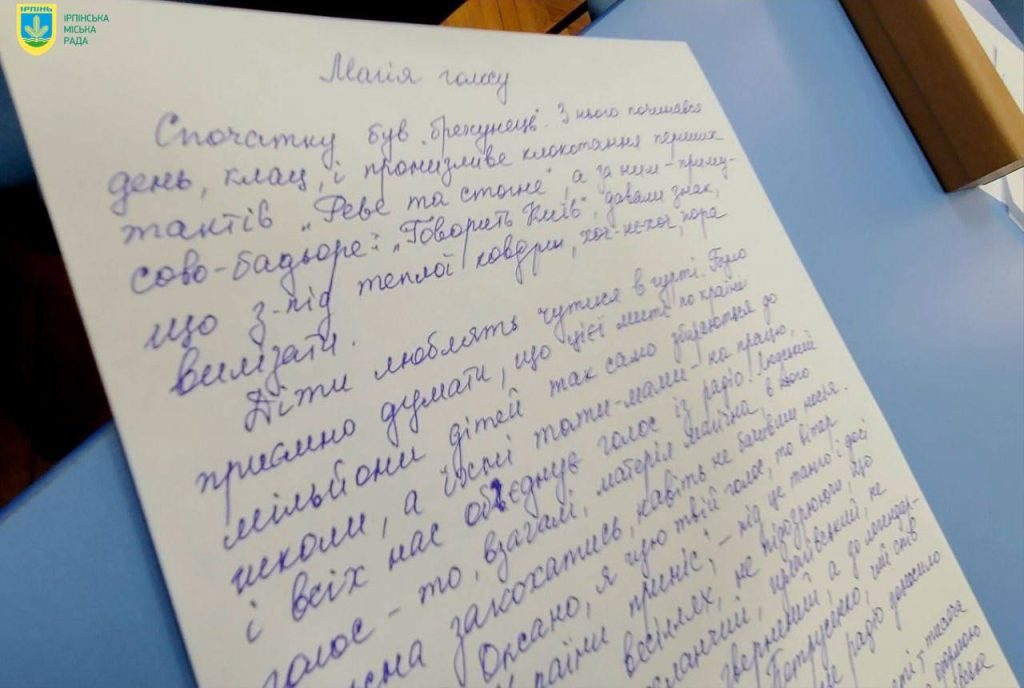 ІРПІНЬ
ІРПІНСЬКА
МІСЬКА
РАДА
Магія голосу
Спочатку був брехунець. З нього починався
день, клац, і пронизливе клокотання перших
тактів „Реве та стогне", а за ним – приму-
сово-бадьоре: „Говорить Київ", давали знак,
що з-під теплої ковдри, хоч-не-хоч, пора
вилізати.
Діти люблять чутися в гурті. Було
приємно думати, що цієї миті по країні
мільйони дітей так само збираються до
школи, а їхні тати-мами – на працю,
і всіх нас об'єднує голос із радіо! Людський
голос – то, взагалі, матерія магічна, в нього
можна закохатись, навіть не бачивши носія.
Оксано, я чую твій голос, то вітер
України приніс, – під це танго і досі
весіллях, не підозрюючи, що
а до легендар-
Петрусенко, чий спів
радіо доносило